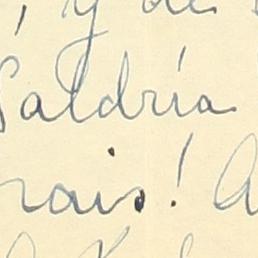 , y de
Saldría
nais! A